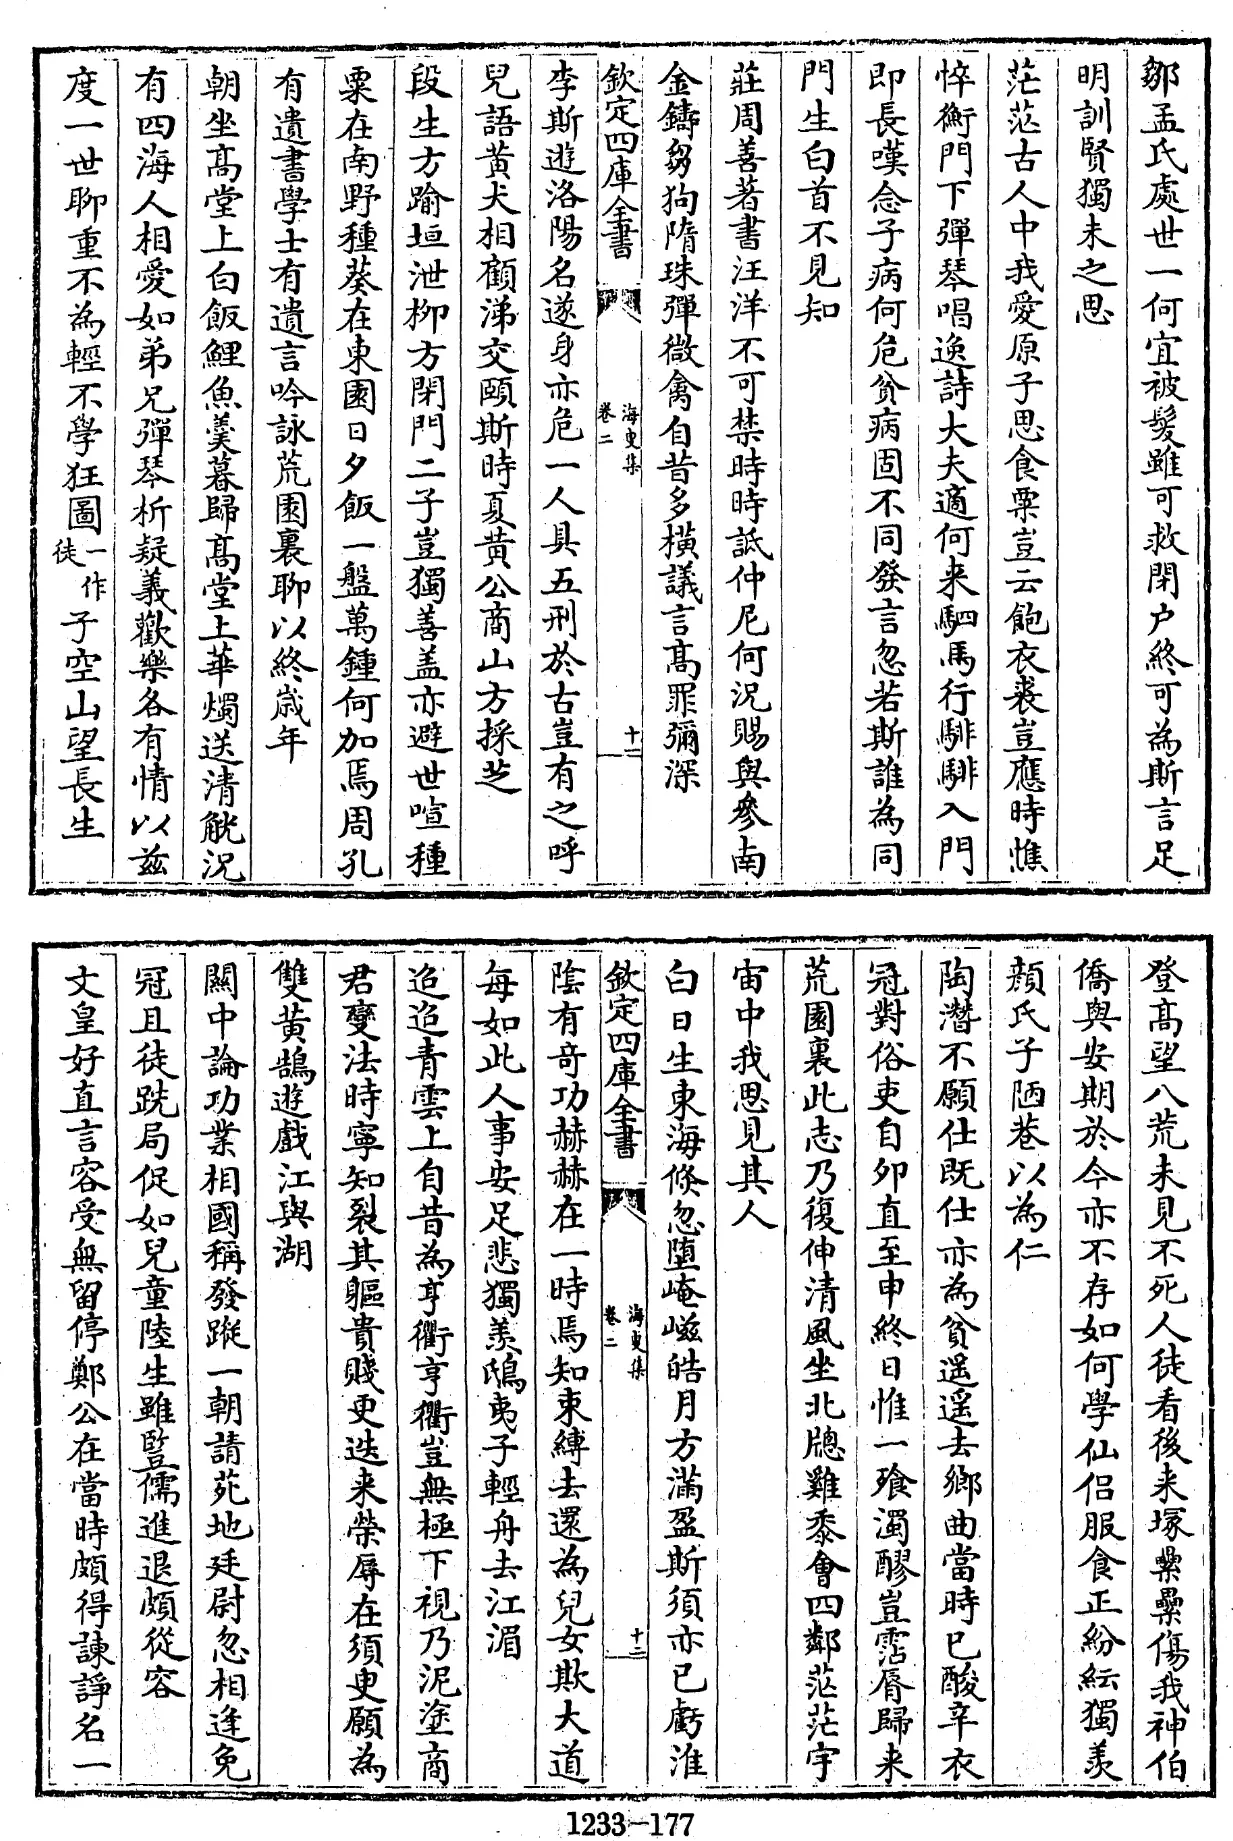 鄒孟氏處世一何宜被髮雖可救閉户終可為斯言足
明訓賢獨未之思
茫茫古人中我愛原子思食粟豈云飽衣裘豈應時憔
悴衡門下彈琴唱逸詩大夫適何来駟馬行騑騑入門
即長嘆念子病何危貧病固不同發言忽若斯誰為同
門生白首不見知
莊周善著書汪洋不可禁時時詆仲尼何況賜與參南
金鑄芻狗隋珠彈微禽自昔多橫議言髙罪彌深
欽定四庫全書
海叟集
卷二
十二
李斯遊洛陽名遂身亦危一人具五刑於古豈有之呼
兒語黄犬相顧涕交頤斯時夏黄公商山方採芝
段生方踰垣泄柳方閉門二子豈獨善盖亦避世喧種
粟在南野種葵在東園日夕飯一盤萬鍾何加焉周孔
有遺書學士有遺言吟詠荒園裏聊以終歲年
朝坐髙堂上白飯鯉魚羮暮歸髙堂上華燭送清觥況
有四海人相愛如弟兄彈琴析疑義歡樂各有情以兹
度一世聊重不為輕不學狂圖一作徒子空山望長生
登髙望八荒未見不死人徒看後来塚纍纍傷我神伯
僑與安期於今亦不存如何學仙侣服食正紛紜獨羨
顔氏子陋巷以為仁
陶潛不願仕既仕亦為貧遥遥去鄉曲當時已酸辛衣
冠對俗吏自夘直至申終日惟一飱濁醪豈霑脣歸来
荒園裏此志乃復伸清風坐北牕雞黍會四鄰茫茫宇
宙中我思見其人
白日生東海倐忽墮崦嵫皓月方滿盈斯須亦已虧淮
欽定四庫全書
海叟集
卷二
十二
陰有竒功赫赫在一時焉知束縛去還為兒女欺大道
每如此人事安足悲獨羨鴟夷子輕舟去江湄
迢迢青雲上自昔為亨衢亨衢豈無極下視乃泥塗商
君變法時寧知裂其軀貴賤更迭来榮辱在須臾願為
雙黄鵠遊戲江與湖
闗中論功業相國稱發蹤一朝請苑地廷尉忽相逢免
冠且徒跣局促如兒童陸生雖豎儒進退頗從容
文皇好直言容受無留停鄭公在當時頗得諫諍名一
1233-177